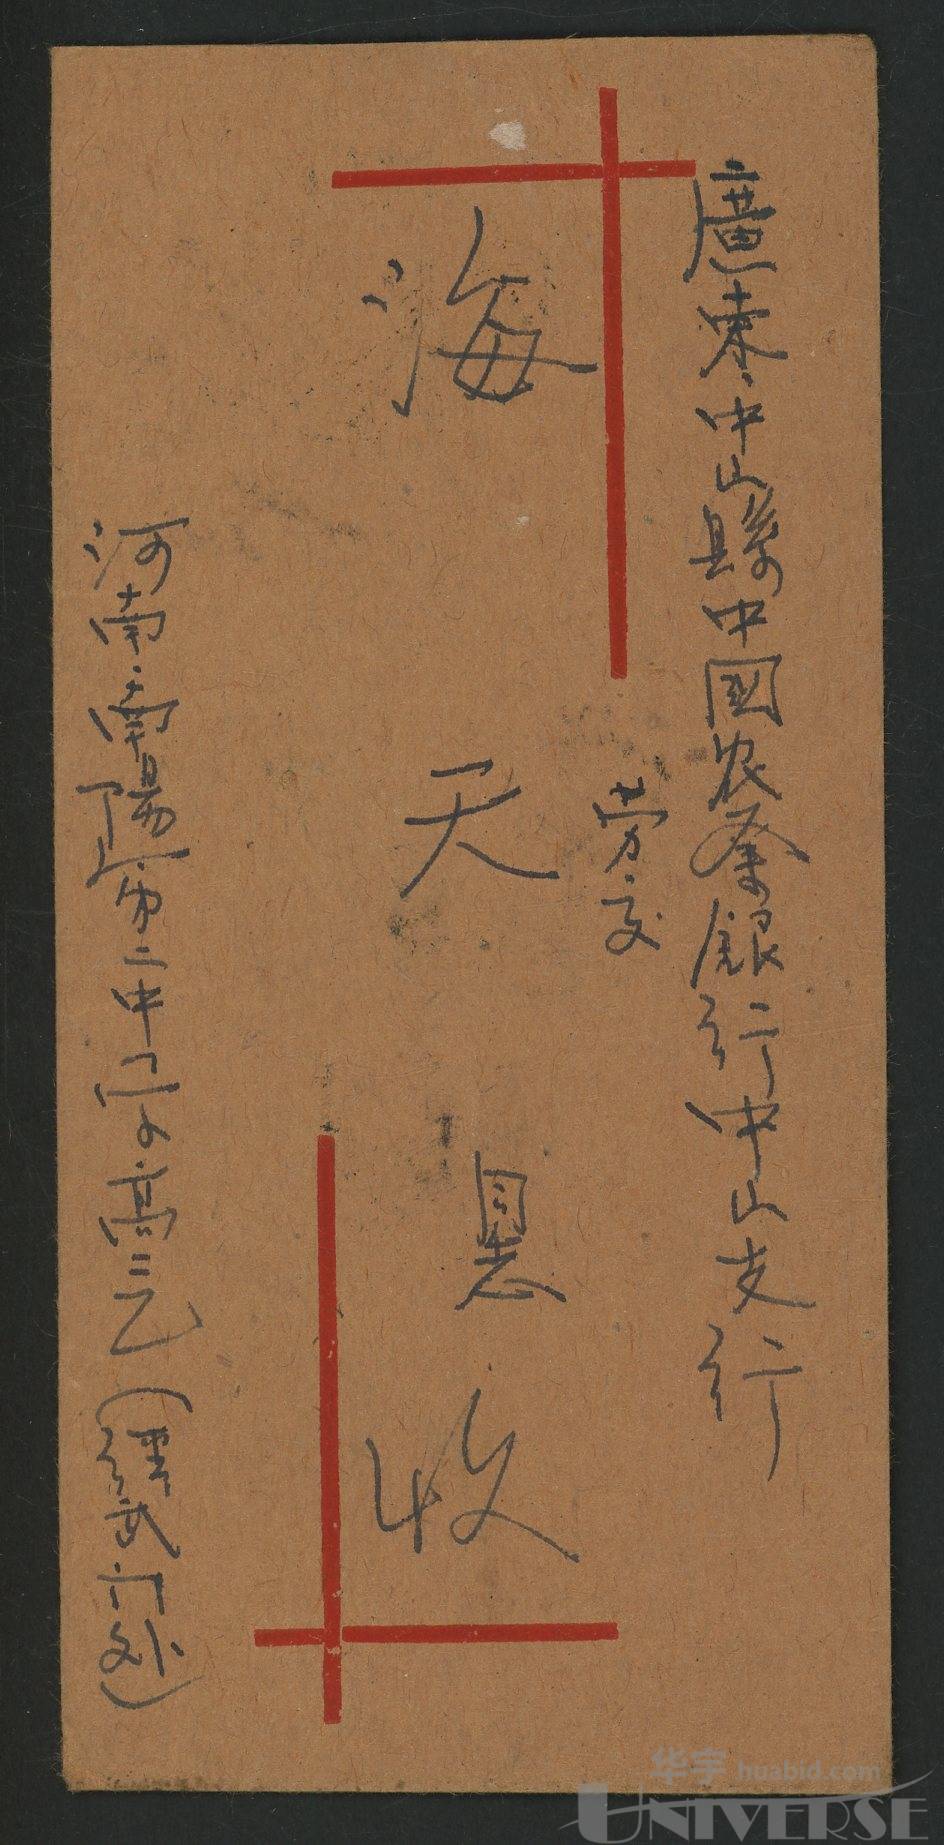 廣東·中山縣中國农民銀行中山支行
劳·交
海天恩收
河南·南陽市二中學高三乙（繹武门外）
华宇 huabid.com
UNIVERSE